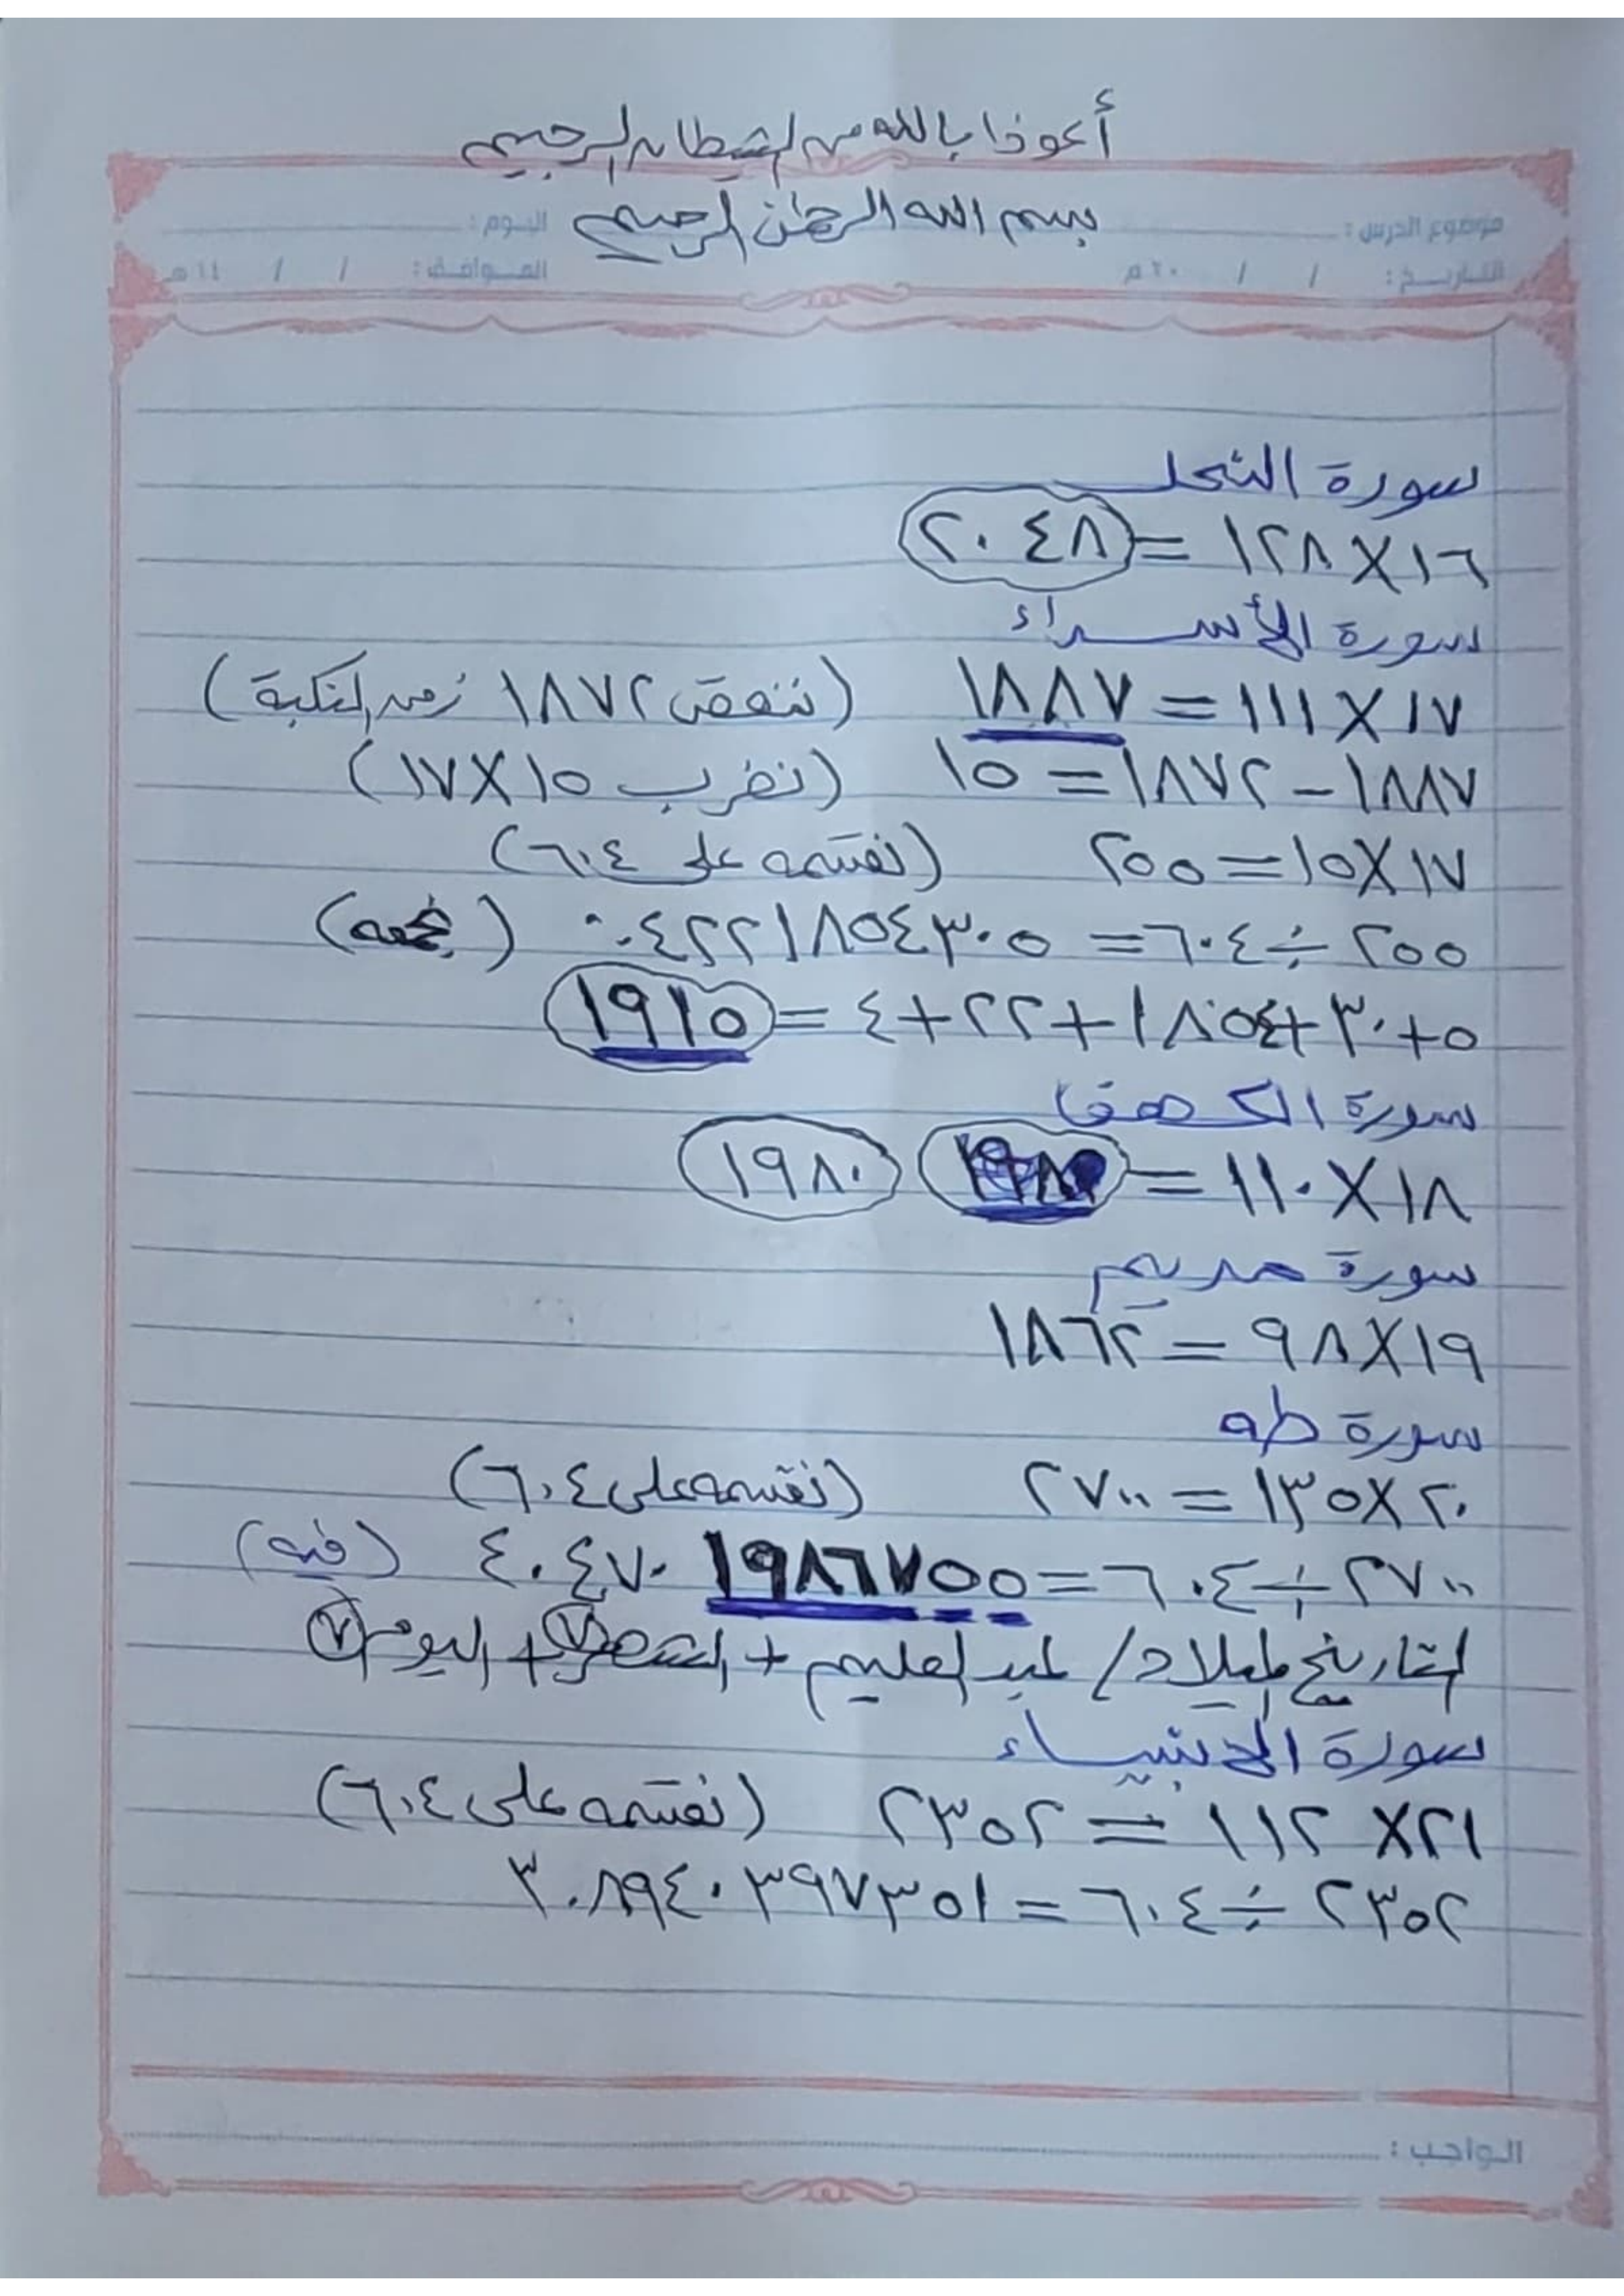 أعوذ بالله من الشيطان الرجيم
بسم الله الرحمن الرحيم
موضوع الدرس : اليوم :
التاريخ : / / ٢٠ م الموافق : / / ١٤ هـ
سورة النحل
١٦ X ١٢٨ = ٢٠٤٨
سورة الأسراء
١٧ X ١١١ = ١٨٨٧ (ننقص ١٨٧٢ زمن النكبة)
١٨٨٧ - ١٨٧٢ = ١٥ (نضرب ١٥ X ١٧)
١٧ X ١٥ = ٢٥٥ (نقسمه على ٦٠٤)
٢٥٥ ÷ ٦٠٤ = ٠.٤٢٢١٨٥٤٣٠٥ (نجمعه)
٥ + ٣٠ + ١٨٥٤ + ٢٢ + ٤ = ١٩١٥
سورة الكهف
١٨ X ١١٠ = ١٩٨٠ ١٩٨٠
سورة مريم
١٩ X ٩٨ = ١٨٦٢
سورة طه
٢٠ X ١٣٥ = ٢٧٠٠ (نقسمه على ٦٠٤)
٢٧٠٠ ÷ ٦٠٤ = ٤.٤٧٠١٩٨٦٧٥٥ (فيه)
التاريخ لميلاد / عبد العليم + الشهر ٧ + اليوم ٧
سورة الأنبياء
٢١ X ١١٢ = ٢٣٥٢ (نقسمه على ٦٠٤)
٢٣٥٢ ÷ ٦٠٤ = ٣.٨٩٤٠٣٩٧٣٥١
الواجب :